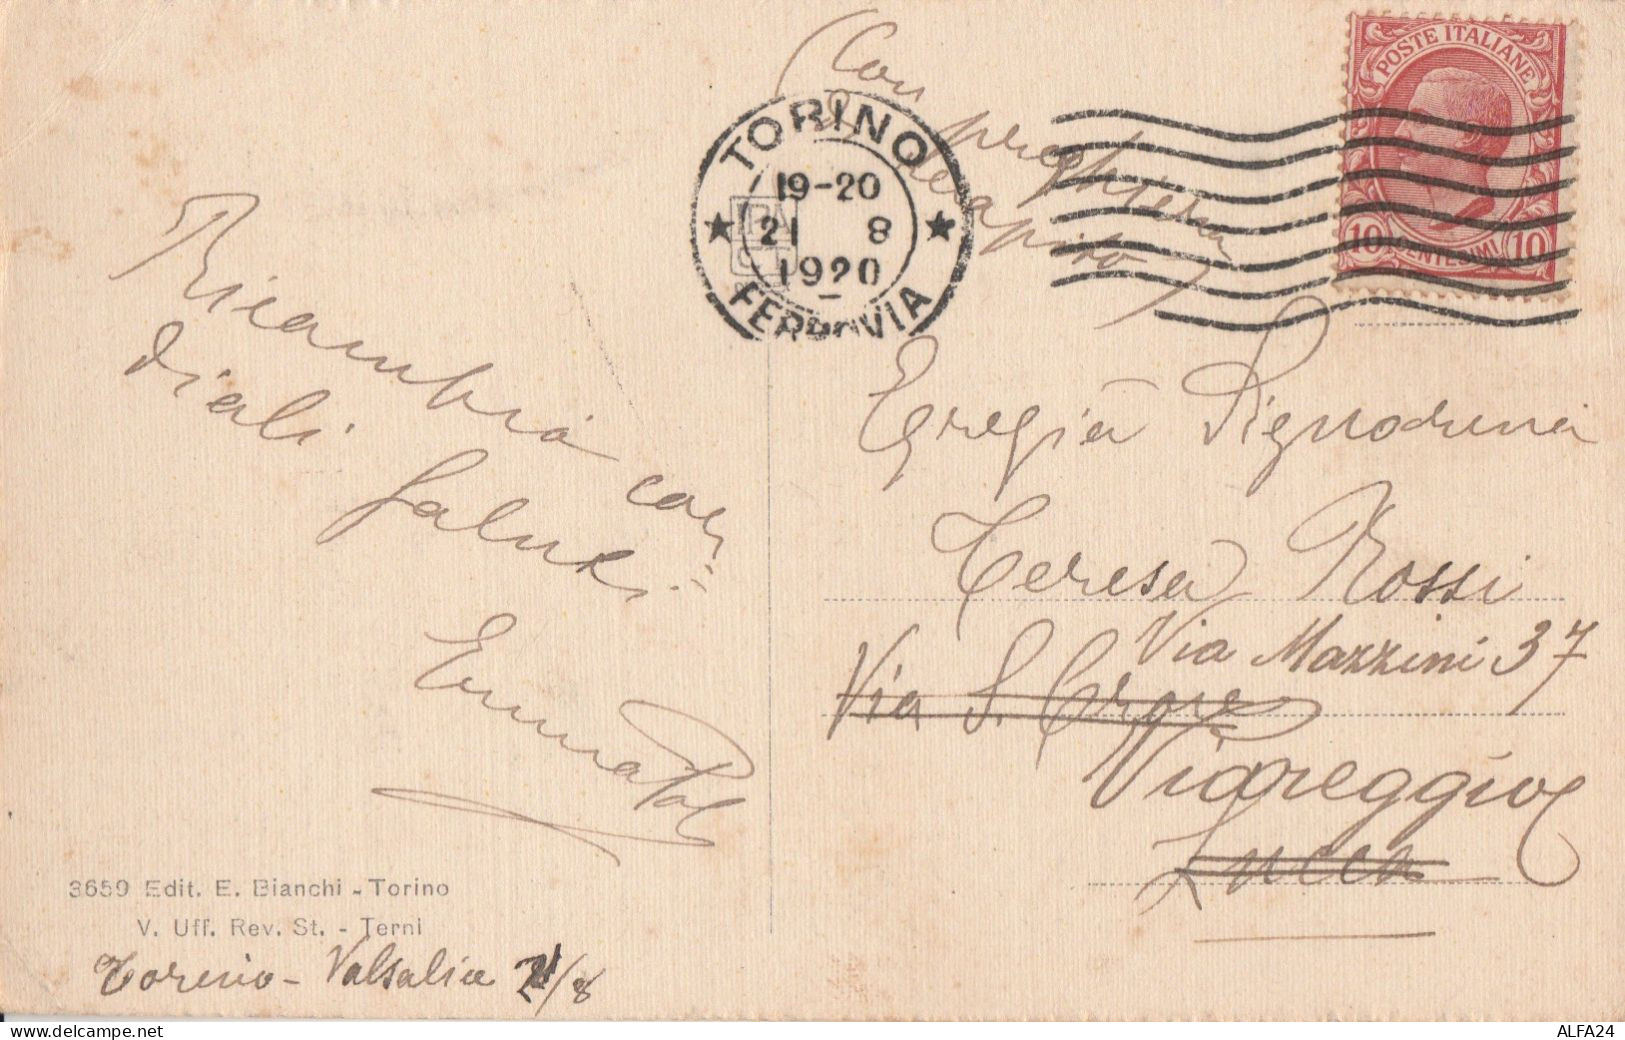 (Con preghiera
recapito)
POSTE ITALIANE
10 CENTESIMI 10
TORINO
19-20
21 8
1920
FERROVIA
Ricambia cor=
diali saluti
Egregia Signorina
Teresa Rossi
Via Mazzini 37
Via S. Croce
Viareggio
Lucca
3659 Edit. E. Bianchi - Torino
V. Uff. Rev. St. - Terni
Torino - Valsalice 21/8
ALFA24